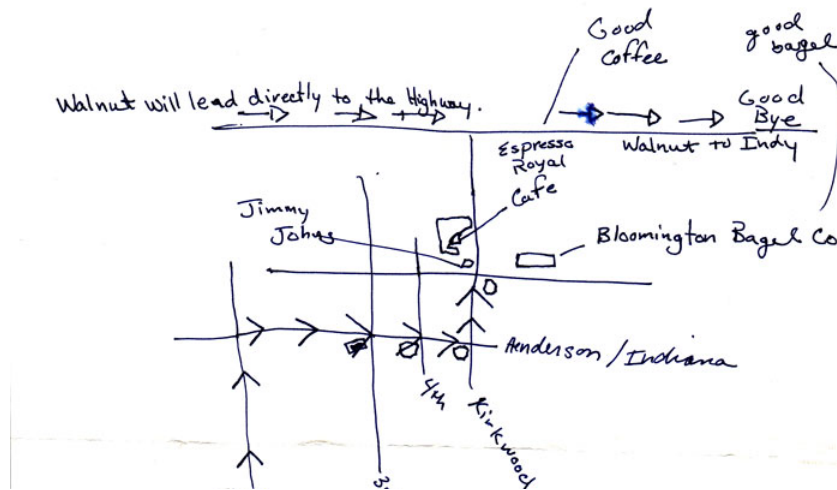 Good
Coffee
good
bagel
Walnut will lead directly to the Highway.
Good
Bye
Espresso
Royal
Cafe
Walnut to Indy
Jimmy
Johns
Bloomington Bagel Co
Henderson/Indiana
4th
Kirkwood